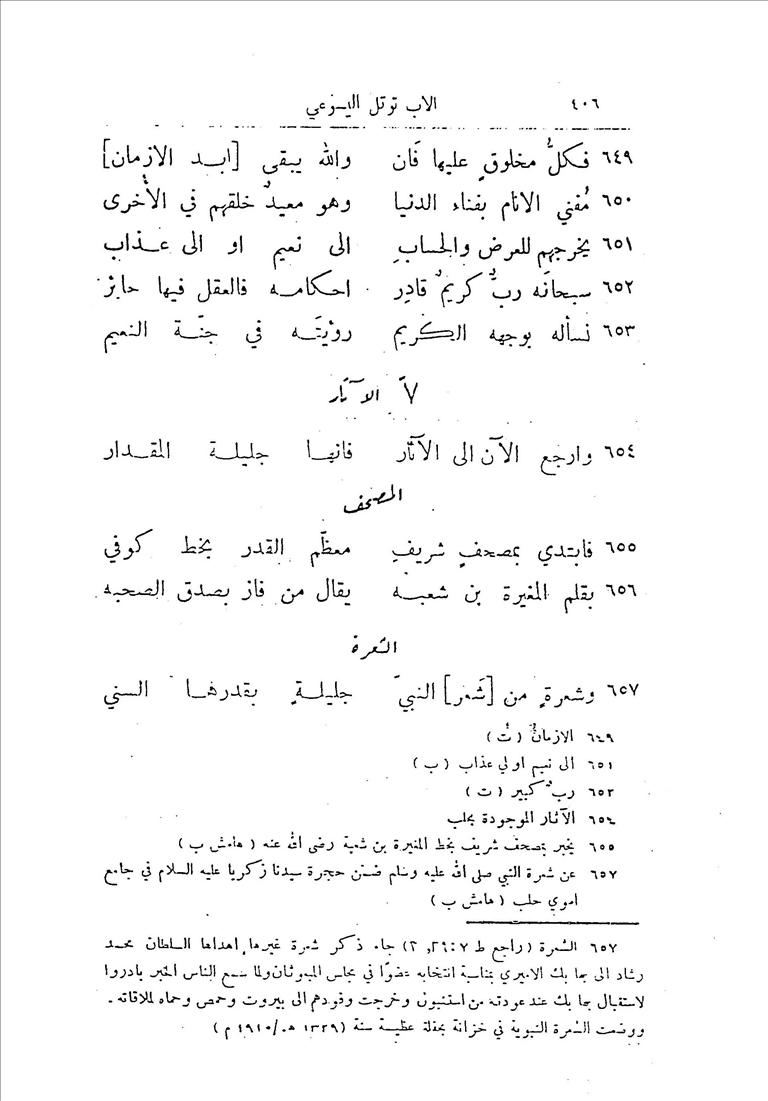 ٤٠٦ الاب توتل اليسوعي
٦٤٩ فكلُّ مخلوقٍ عليها فَان والله يبقى [ابد الازمان]
٦٥٠ مُفني الانام بفناء الدنيا وهو معيدُ خلقهم في الأُخرى
٦٥١ يخرجهم للعرض والحسابِ الى نعيم او الى عذاب
٦٥٢ سبحانَه ربٌّ كريمٌ قادِر احكامه فالعقل فيها حايرْ
٦٥٣ نسأله بوجهه الكريم رؤيتَه في جنّة النعيم
٧ّ الآثار
٦٥٤ وارجع الآن الى الآثار فانها جليلة المقدار
المصحف
٦٥٥ فابتدي بمصحفٍ شريفِ معظّم القدر بخط كوفي
٦٥٦ بقلم المغيرة بن شعبه يقال من فاز بصدق الصحبه
الشعرة
٦٥٧ وشعرةٍ من [شَعر] النبيّ جليلةٍ بقدرها السني
٦٤٩ الازمانُ (ت)
٦٥١ الى نعيم اولي عذاب (ب)
٦٥٢ ربٌ كبير (ت)
٦٥٤ الآثار الموجودة بحلب
٦٥٥ يخبر بمصحف شريف بخط المغيرة بن شعبة رضى الله عنه (هامش ب)
٦٥٧ عن شعرة النبي صلى الله عليه وسلم ضمن حجرة سيدنا زكريا عليه السلام في جامع
اموي حلب (هامش ب)
٦٥٧ الشعرة (راجع ط ٢٦:٧, ٢) جاء ذكر شعرة غيرها اهداها السلطان محمد
رشاد الى جا بك الاميري بمناسبة انتخابه عضوًا في مجلس المبعوثان ولما سمع الناس الخبر بادروا
لاستقبال جا بك عند عودته من استنبول وخرجت وفودهم الى بيروت وحمص وحماه لملاقاته.
ووضعت الشعرة النبوية في خزانة بحفلة عظيمة سنة (١٣٢٩ هـ./١٩١٠ م)